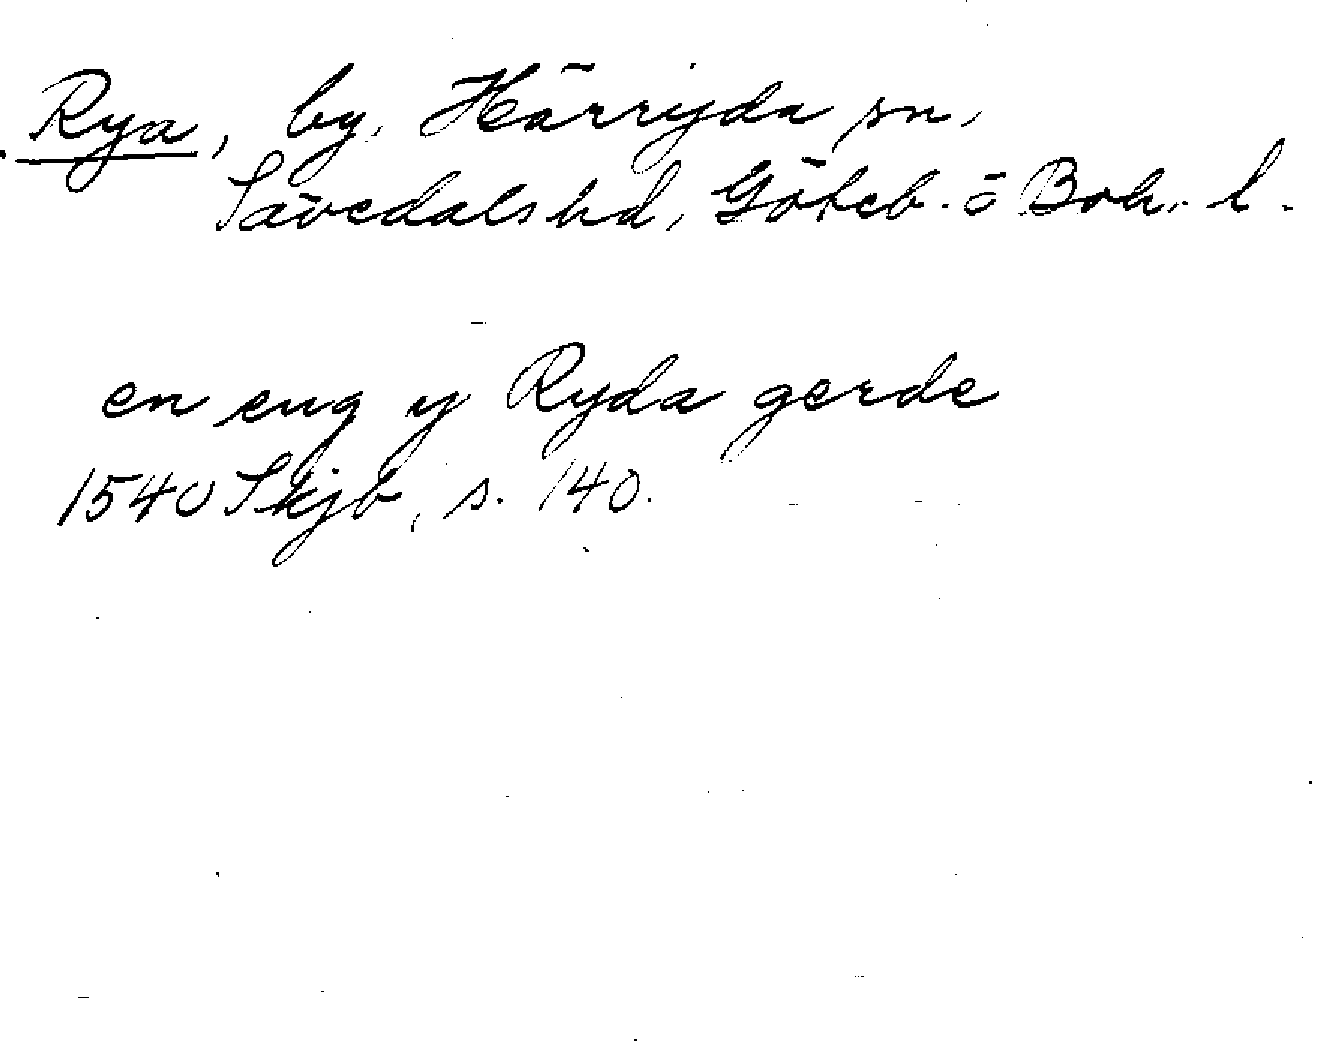 Rya, by, Härryda sn,
Sävedals hd, Göteb. o Boh. l.
en eng y Ryda gerde
1540 Skjb, s. 140.